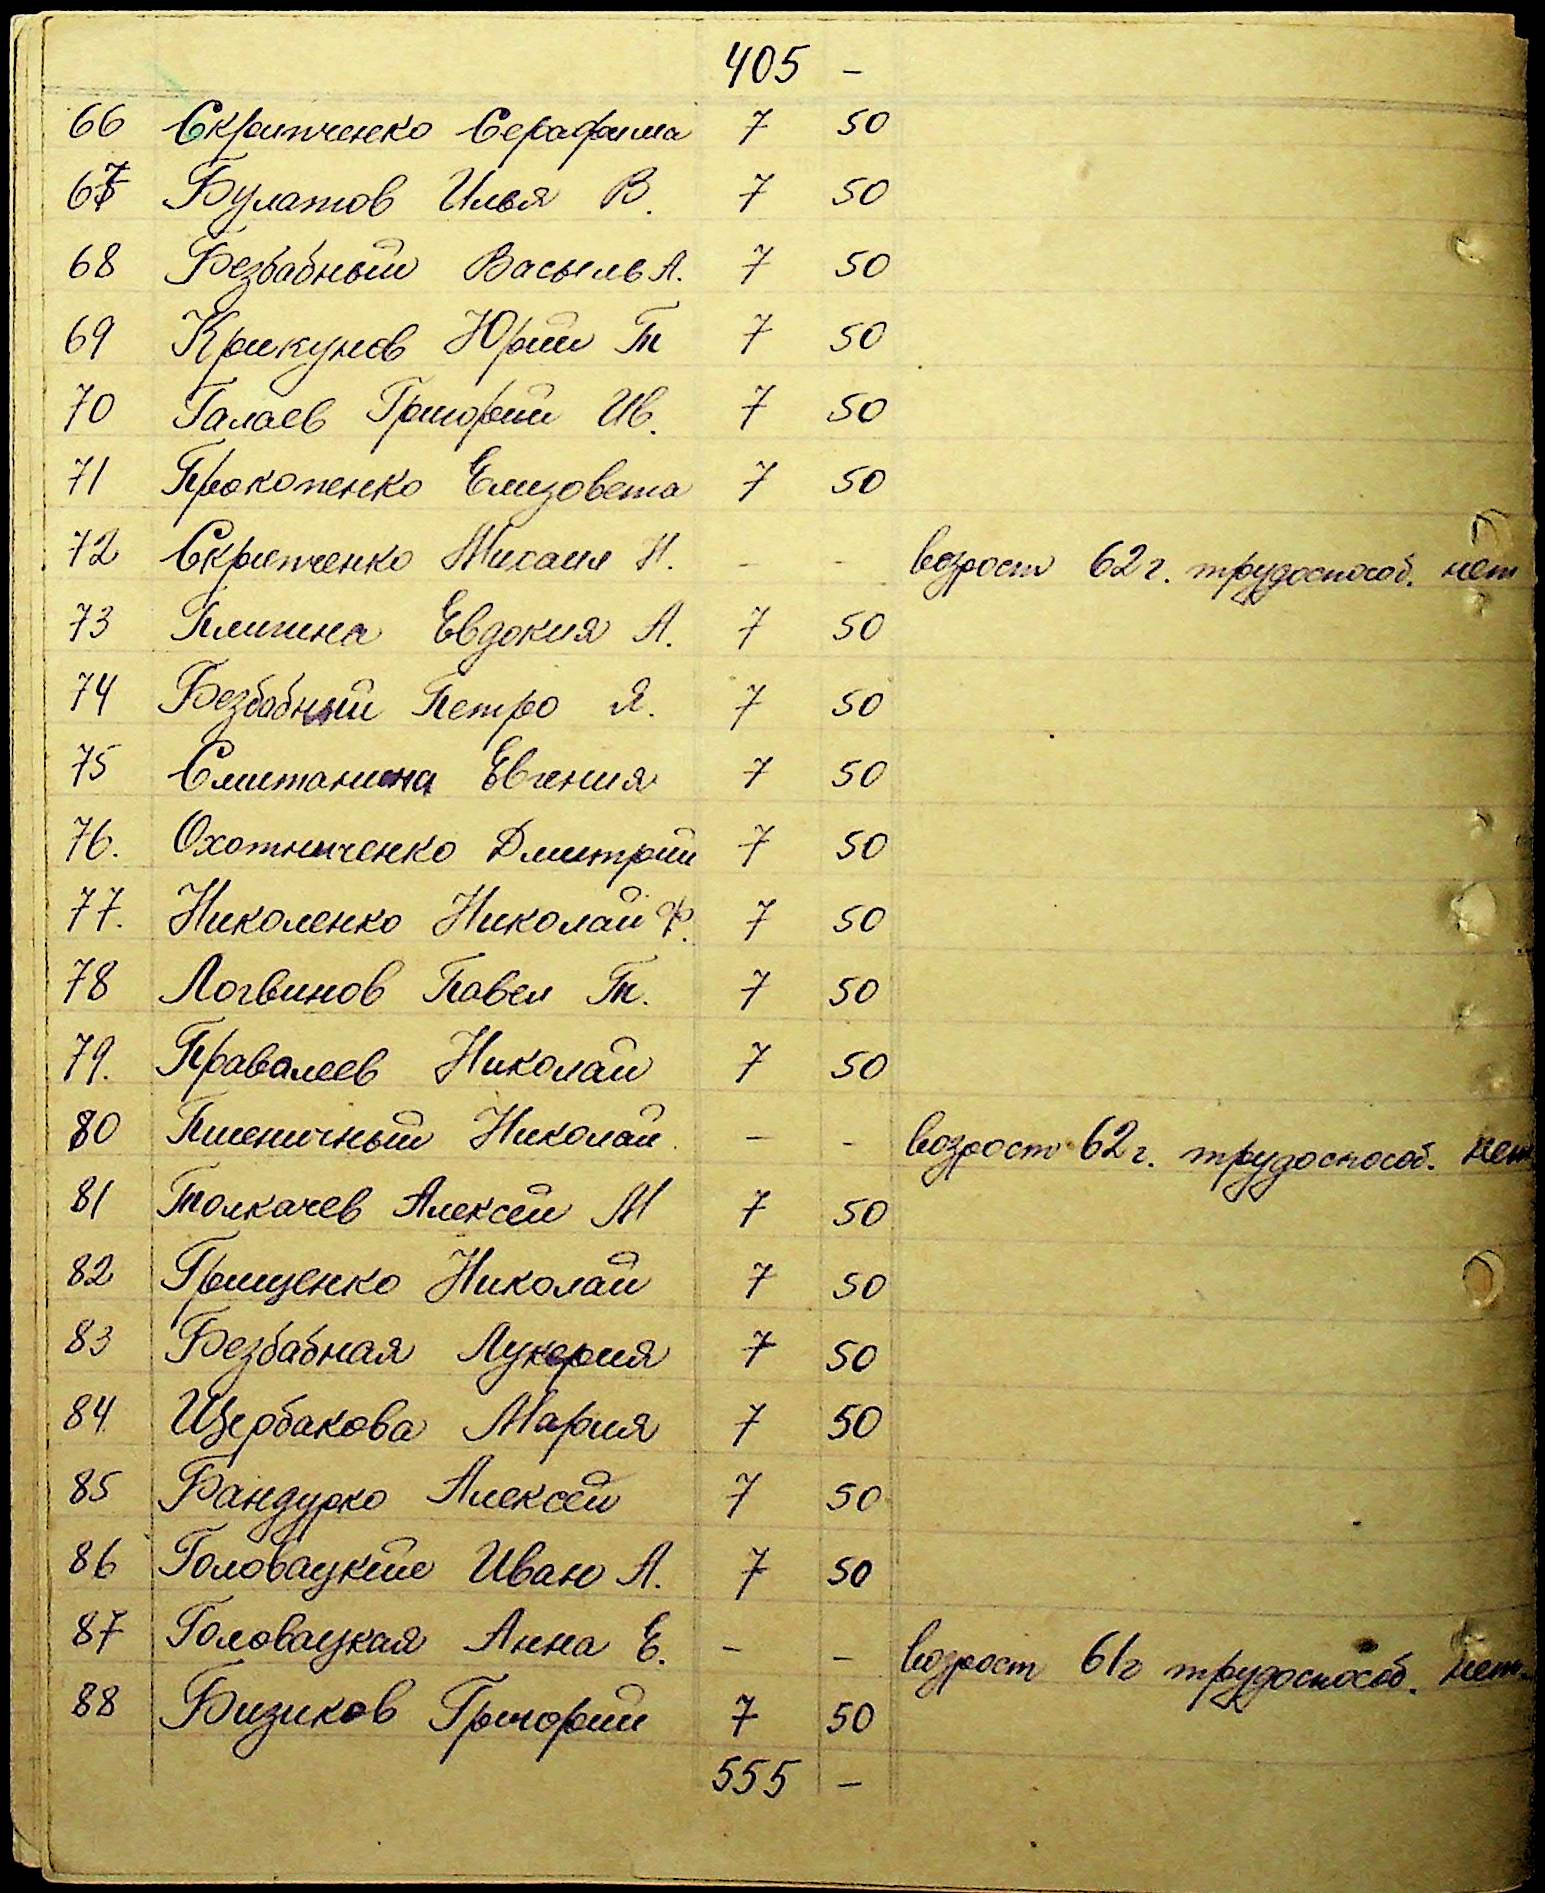 405 –
66 Скрипченко Серафима 7 50
67 Булатов Илья В. 7 50
68 Безбабный Василь А. 7 50
69 Крикунов Юрий Т 7 50
70 Галаев Григорий Ив. 7 50
71 Прокопенко Елизовета 7 50
72 Скрипченко Михаил Н. – – возрост 62 г. трудоспособ. нет
73 Плигина Евдокия А. 7 50
74 Безбабный Петро Я. 7 50
75 Смитанина Евгения 7 50
76. Охотниченко Дмитрий 7 50
77. Николенко Николай Ф. 7 50
78 Логвинов Павел Т. 7 50
79. Правалеев Николай 7 50
80 Пшеничный Николай – – возрост 62 г. трудоспособ. нет
81 Толкачев Алексей М 7 50
82 Грищенко Николай 7 50
83 Безбабная Лукерия 7 50
84 Щербакова Мария 7 50
85 Бандурко Алексей 7 50
86 Головацкий Иван А. 7 50
87 Головацкая Анна Е. – – возрост 61 г трудоспособ. нет
88 Бизиков Григорий 7 50
555 –